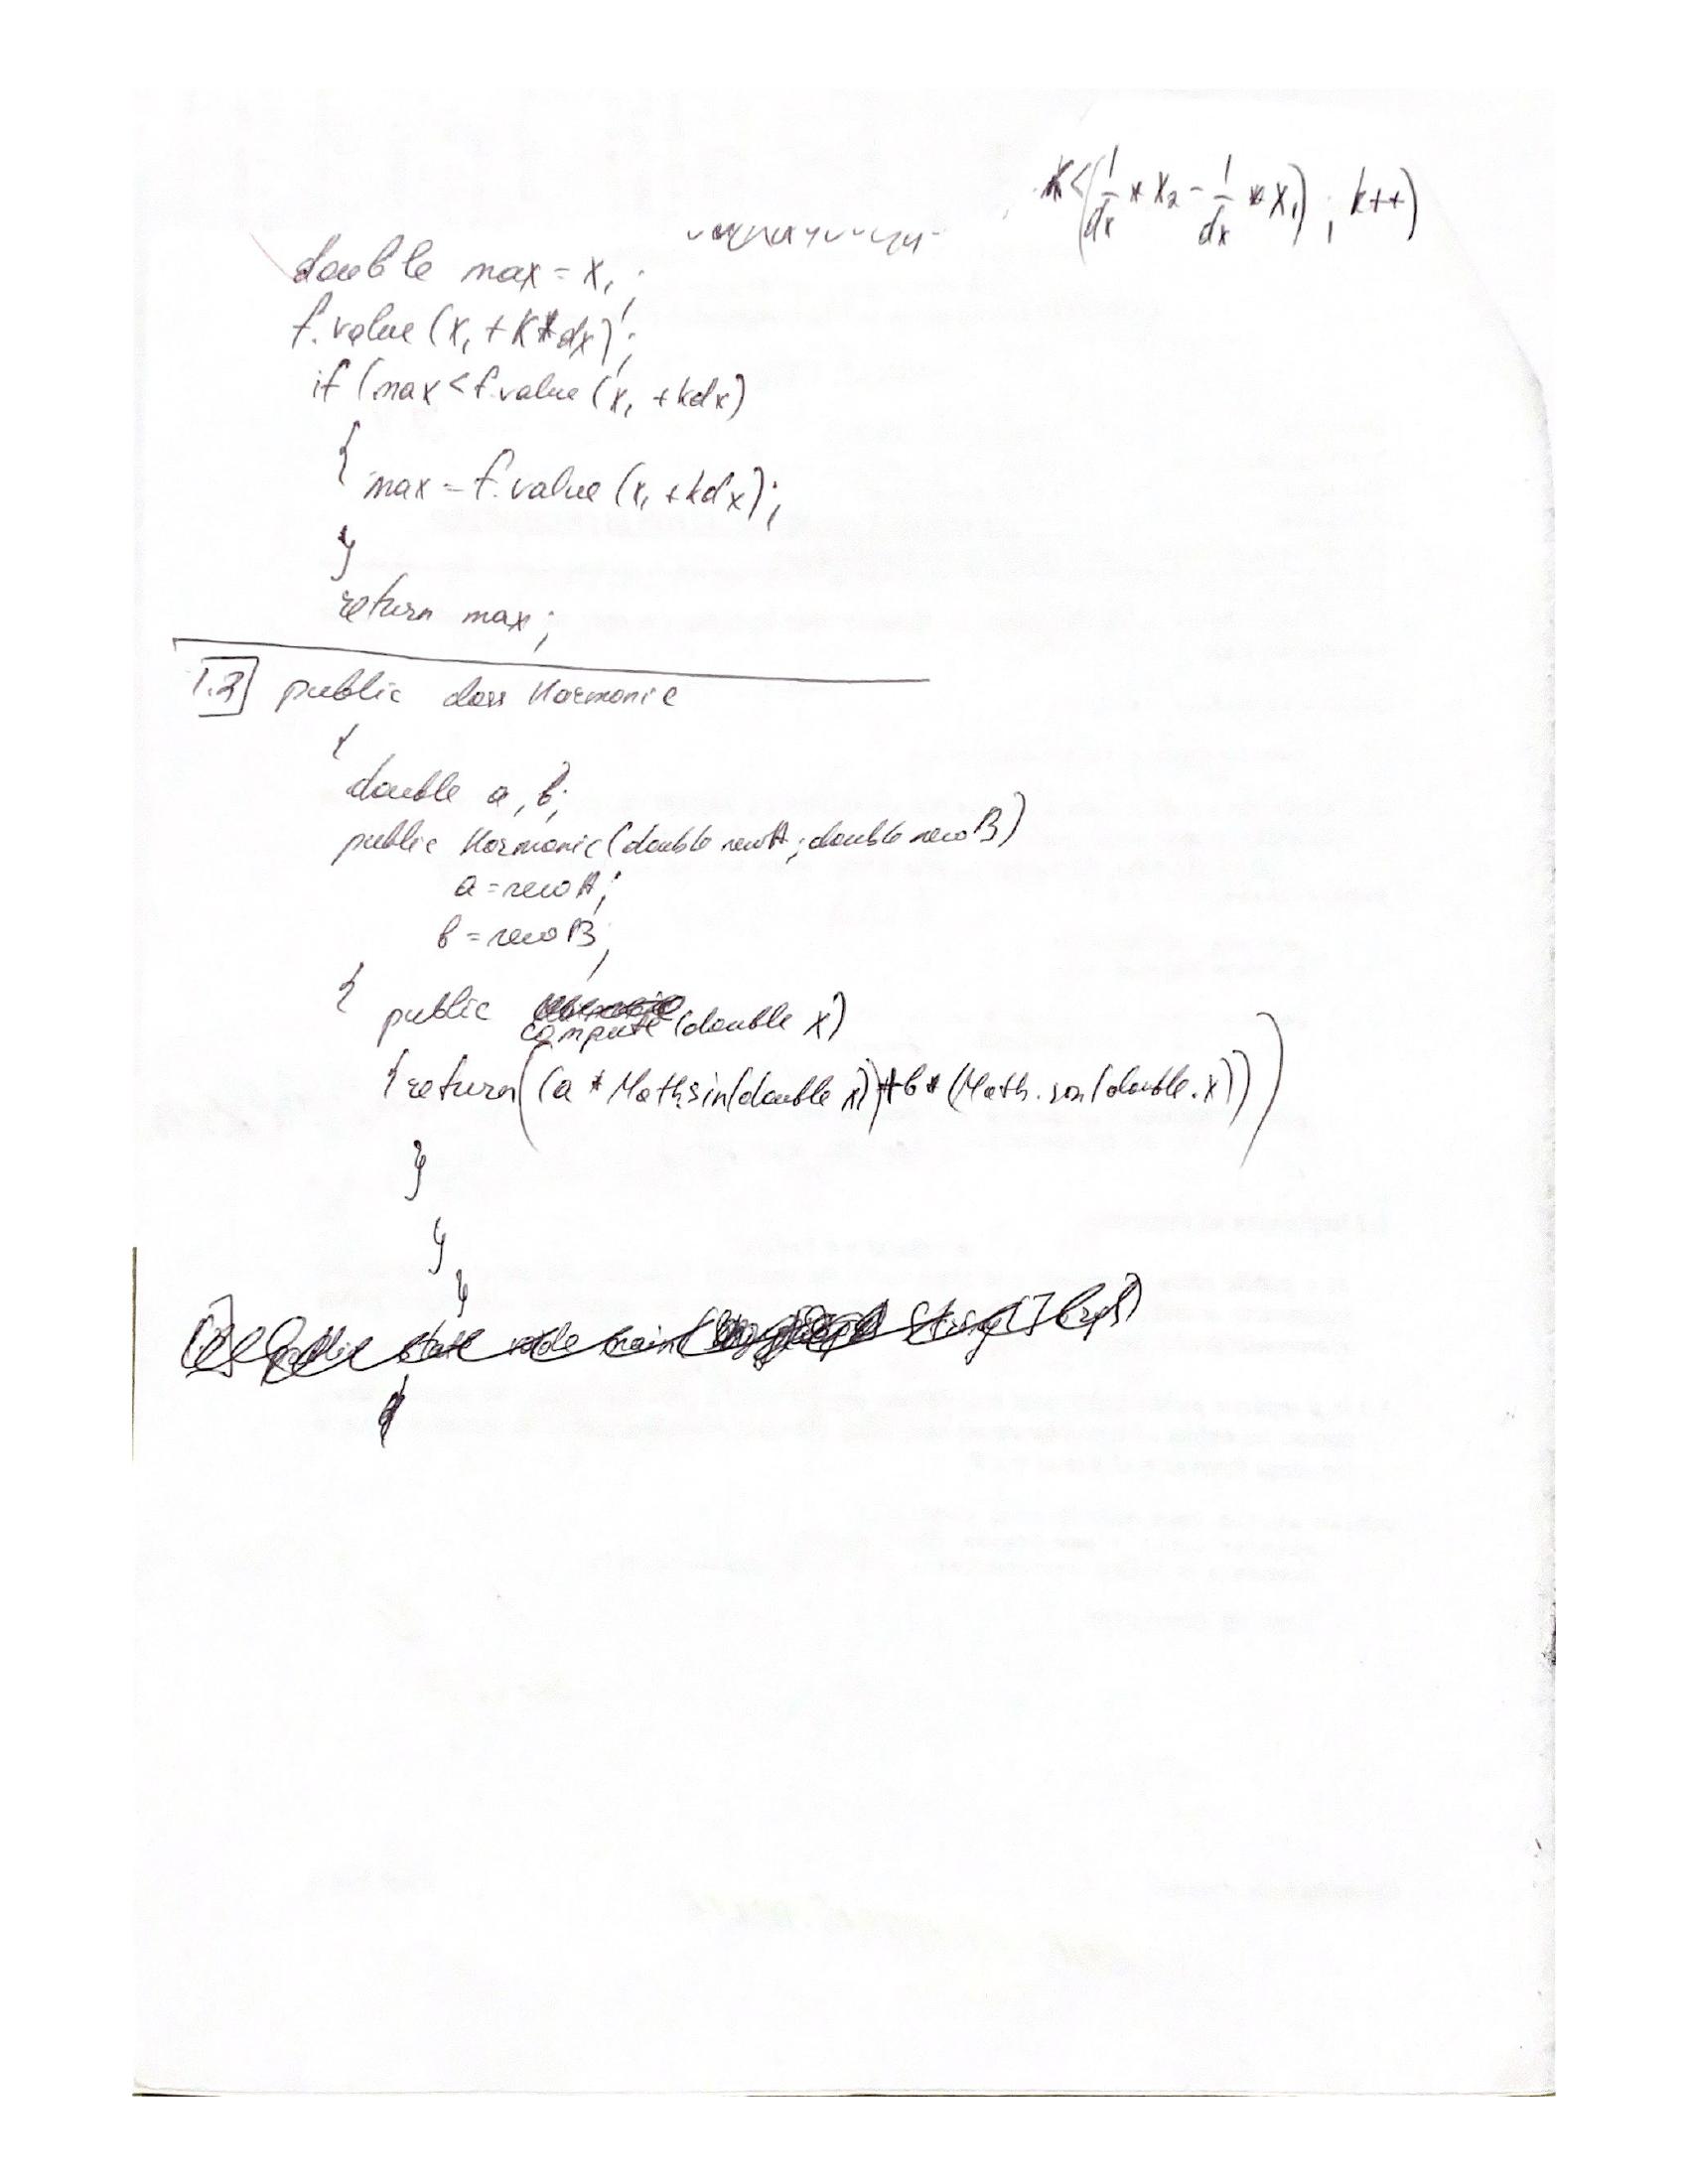 K<(1/dx * x₂ - 1/dx * x₁) ; k++)
double max = x₁;
f.value (x₁ + K*dx);
if (max < f.value (x₁ + kdx)
{
max = f.value (x₁ + kdx);
}
return max;
1.2] public class Harmonic
{
double a, b;
public Harmonic(double newA; double newB)
a = newA;
b = newB;
{ public
compute (double x)
{ return((a * Math.sin(double x))+b*(Math.sin(double.x)))
}
}
}